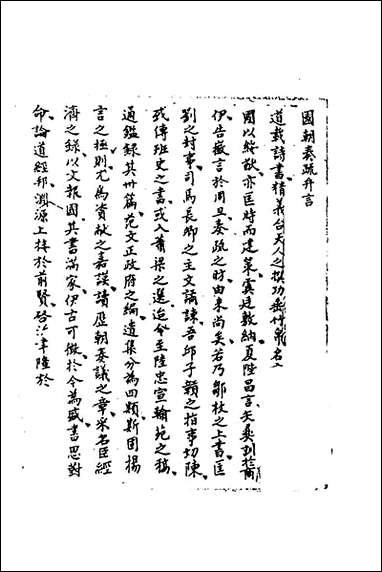 國朝奏疏弁言
道載詩書精義合天人之撰功垂竹帛名
國以綏猷亦匡時而建策虞廷敷納夏陛昌言矢奏
伊告箴言於周旦奏疏之昉由來尚矣若乃鄒枚之上書匡
劉之封事司馬長卿之主文譎諫吾邱子贛之指事切陳
或傳班史之書或入蕭梁之選迨今至陸忠宣翰苑之稿
通鑑錄其卅篇范文正政府之編遺集分為四類斯固揚
言之極則尤為資獻之嘉謨讀歷朝奏議之章米名臣經
濟之錄以文報國其書滿家伊古可徵於今為盛書思對
命論道經邦淵源上接於前賢啓沃聿隆於